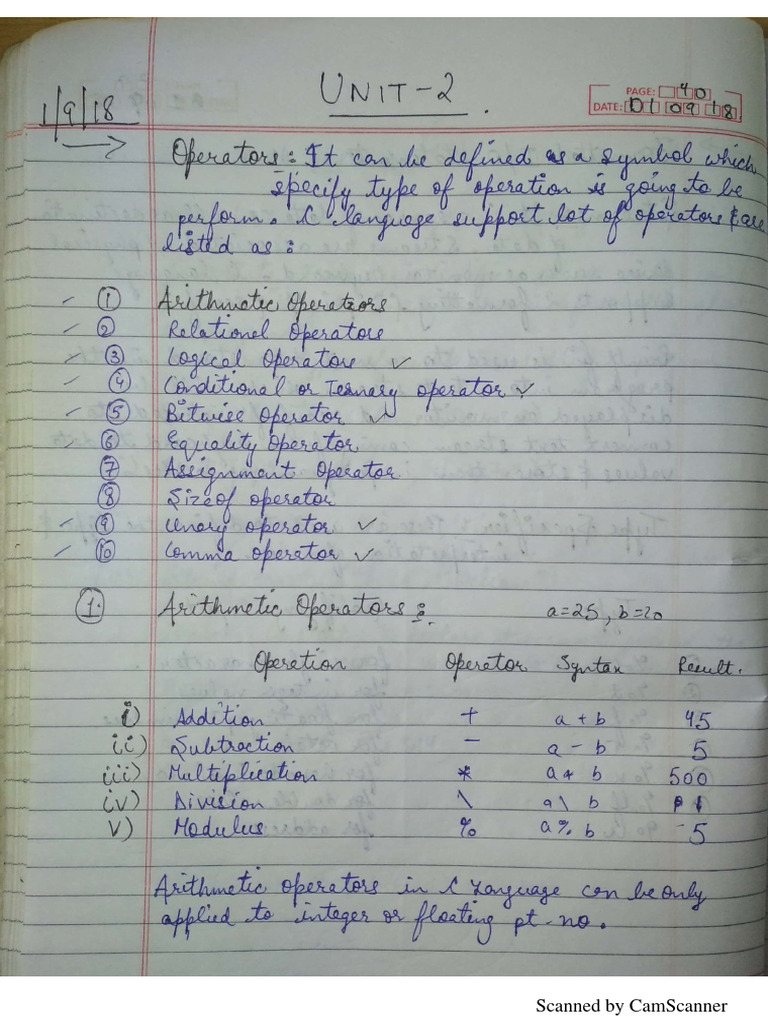 UNIT-2
1/9/18
PAGE: 40
DATE: 01 09 18
Operators: It can be defined as a symbol which
specify type of operation is going to be
perform. C language support lot of operators & are
listed as:
① Arithmatic Operators
② Relational Operators
③ Logical Operators ✓
④ Conditional or Ternary operator ✓
⑤ Bitwise Operator ✓
⑥ Equality Operator
⑦ Assignment Operator
⑧ Sizeof operator
⑨ Unary operator ✓
⑩ Comma operator ✓
1. Arithmetic Operators: a=25, b=20
Operation Operator Syntax Result.
i) Addition + a + b 45
ii) Subtraction - a - b 5
iii) Multiplication * a * b 500
iv) Division \ a \ b 1
v) Modulus % a % b 5
Arithmetic operators in C Language can be only
applied to integer or floating pt. no.
Scanned by CamScanner